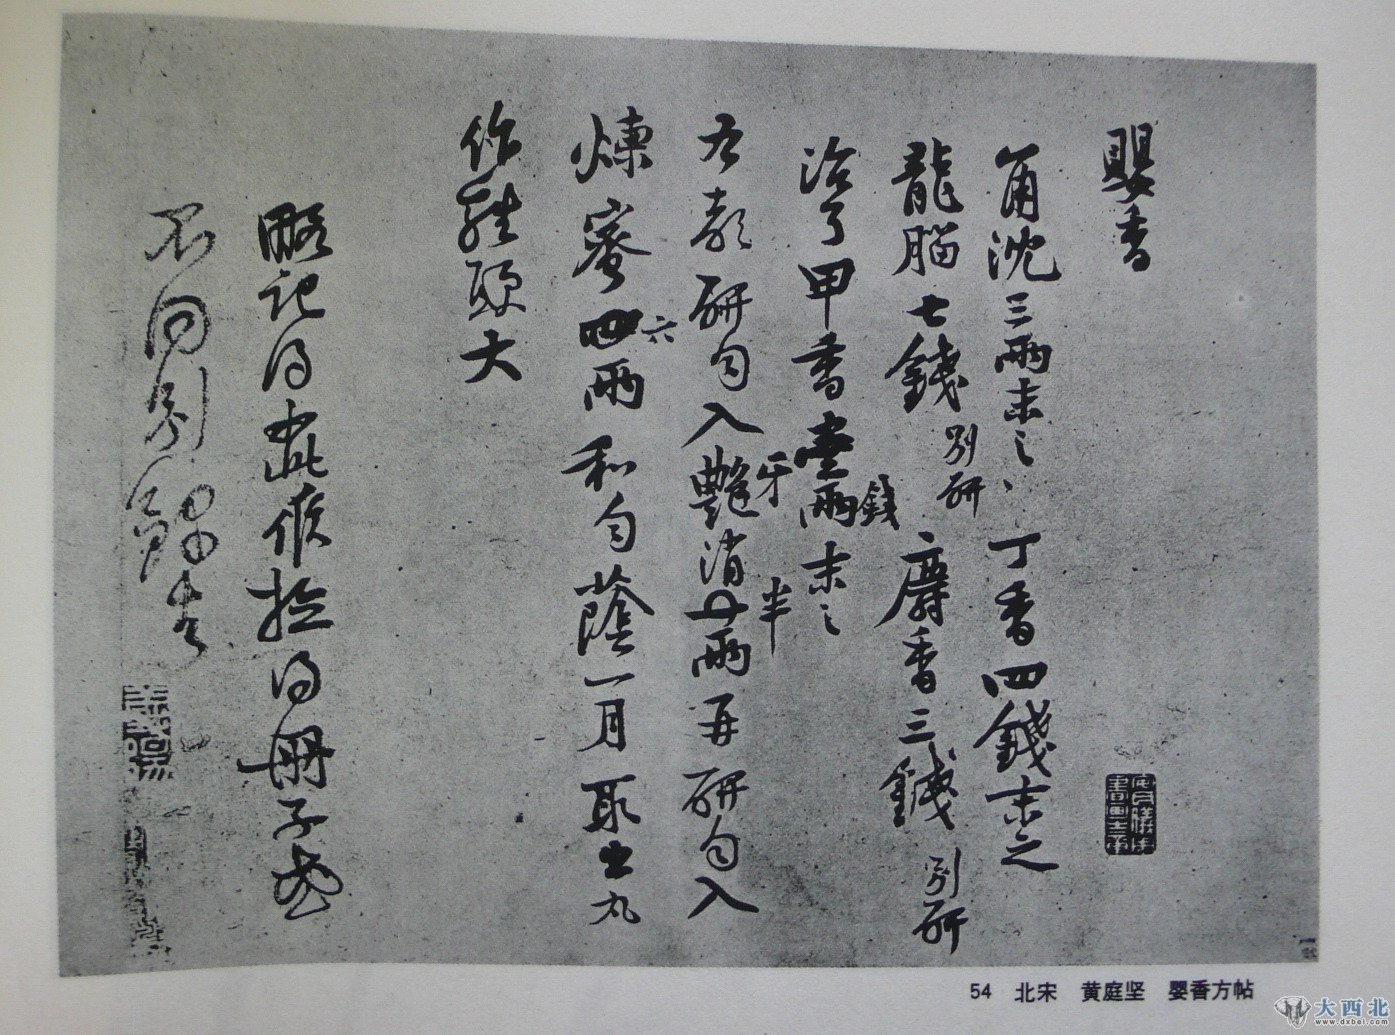 嬰香
角沈三兩末之丁香四錢末之
龍腦七錢別研麝香三錢別研
治了甲香壹兩錢末之
右都研勻入艷牙消半兩再研勻入
煉蜜四六兩和勻蔭一月取出丸
作雞頭大
略記得此候檢得冊子或
不同別
54 北宋 黄庭坚 婴香方帖
大西北
www.dxbei.com